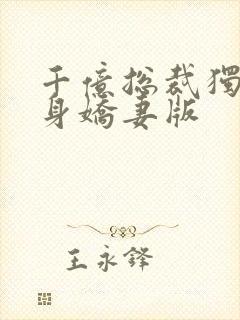 千億總裁獨
身嬌妻版
王永鋒